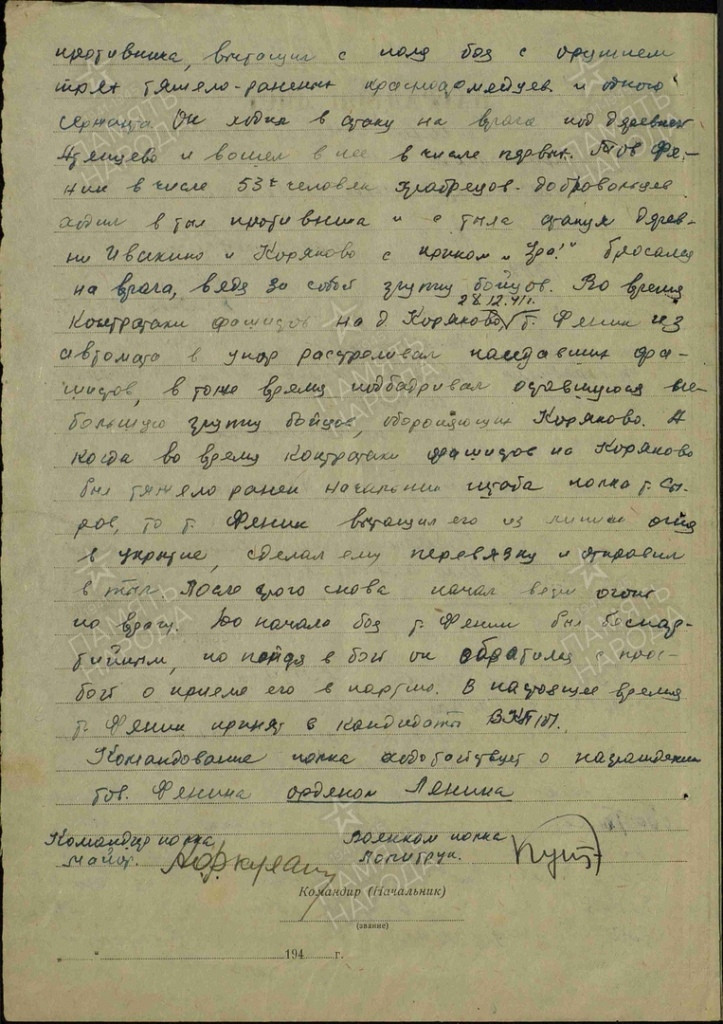 противника, вытащил с поля боя с оружием
трех тяжело-раненых красноармейцев и одного
сержанта. Он ходил в атаку на врага под деревней
и вошел в нее в числе первых. Тов Фе-
нин в числе 53х человек храбрецов-добровольцев
ходил в тыл противника и с тыла атакуя дерев-
ни Ивакино и Коряково с криком "Ура!" бросался
на врага, ведя за собой группу бойцов. Во время
28.12.41г.
контратаки фашистов на д Коряково т. Фенин из
автомата в упор расстреливал наседавших фа-
шистов, в тоже время подбадривал оставшуюся не-
большую группу бойцов, обороняющих Коряково. А
когда во время контратаки фашистов на Коряково
был тяжело ранен начальник штаба полка т. Сы-
ров, то т. Фенин вытащил его из линии огня
в укрытие, сделал ему перевязку и отправил
в тыл. После этого снова начал вести огонь
по врагу. До начала боя т. Фенин был беспар-
тийным, но пойдя в бой он обратился с прос-
бой о приеме его в партию. В настоящее время
т. Фенин принят в кандидаты ВКП(б).
Командование полка ходотайствует о награждении
тов. Фенина орденом Ленина
Командир полка Военком полка
майор Политрук
Командир (Начальник)
(звание)
" 194 г.
ПАМЯТЬ НАРОДА